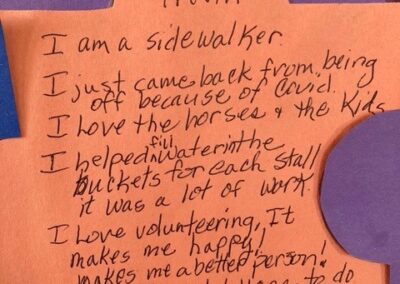 I am a sidewalker.
I just came back from being
off because of Covid.
I Love the horses & the Kids
I helped fill water in the
buckets for each stall
it was a lot of work.
I Love volunteering, It
makes me happy,
makes me a better person!
to do